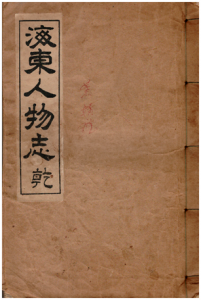 海東人物志 乾